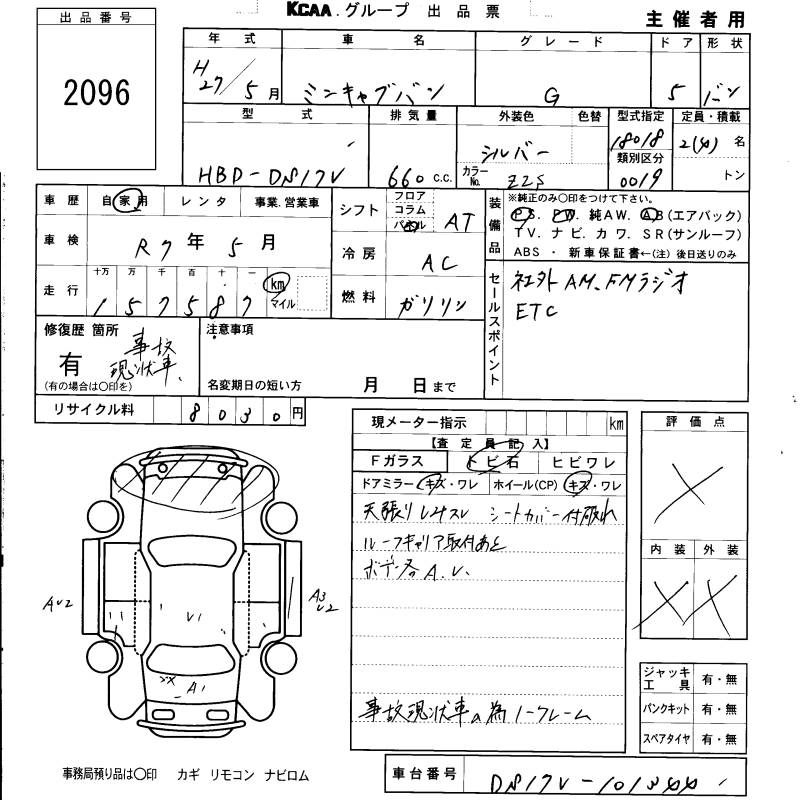 KCAA.グループ 出品票
主催者用
出品番号
2096
年式 車名 グレード ドア 形状
H27/5月 ミニキャブバン G 5 バン
型式 排気量 外装色 色替 型式指定 定員・積載
HBD-DS17V 660 c.c. シルバー 18018 2(4)名
カラーNo. Z2S 類別区分 0019 トン
車歴 自家用 レンタ 事業.営業車
車検 R7年5月
走行 十万 万 千 百 十 一
157587 km マイル
シフト フロア コラム パネル AT
冷房 AC
燃料 ガソリン
装備品 ※純正のみ〇印をつけて下さい。
P.S. P.W. 純AW. A.B(エアバック)
T.V. ナビ. カワ. SR(サンルーフ)
ABS ・ 新車保証書←(注)後日送りのみ
セールスポイント
社外AM.FMラジオ
ETC
修復歴 箇所
有 事故現状車.
(有の場合は〇印を)
注意事項
名変期日の短い方 月 日まで
リサイクル料 8030円
現メーター指示 km
【査定員記入】
Fガラス トビ石 ヒビワレ
ドアミラー キズ・ワレ ホイール(CP) キズ・ワレ
天張りしみスレ シートカバー付破れ
ルーフキャリア取付あと
ボデー各A.U.
事故現状車の為ノークレーム
評価点
内装 外装
AU2
A3
U2
U1
A1
ジャッキ工具 有・無
パンクキット 有・無
スペアタイヤ 有・無
事務局預り品は〇印 カギ リモコン ナビロム
車台番号 DS17V-101344